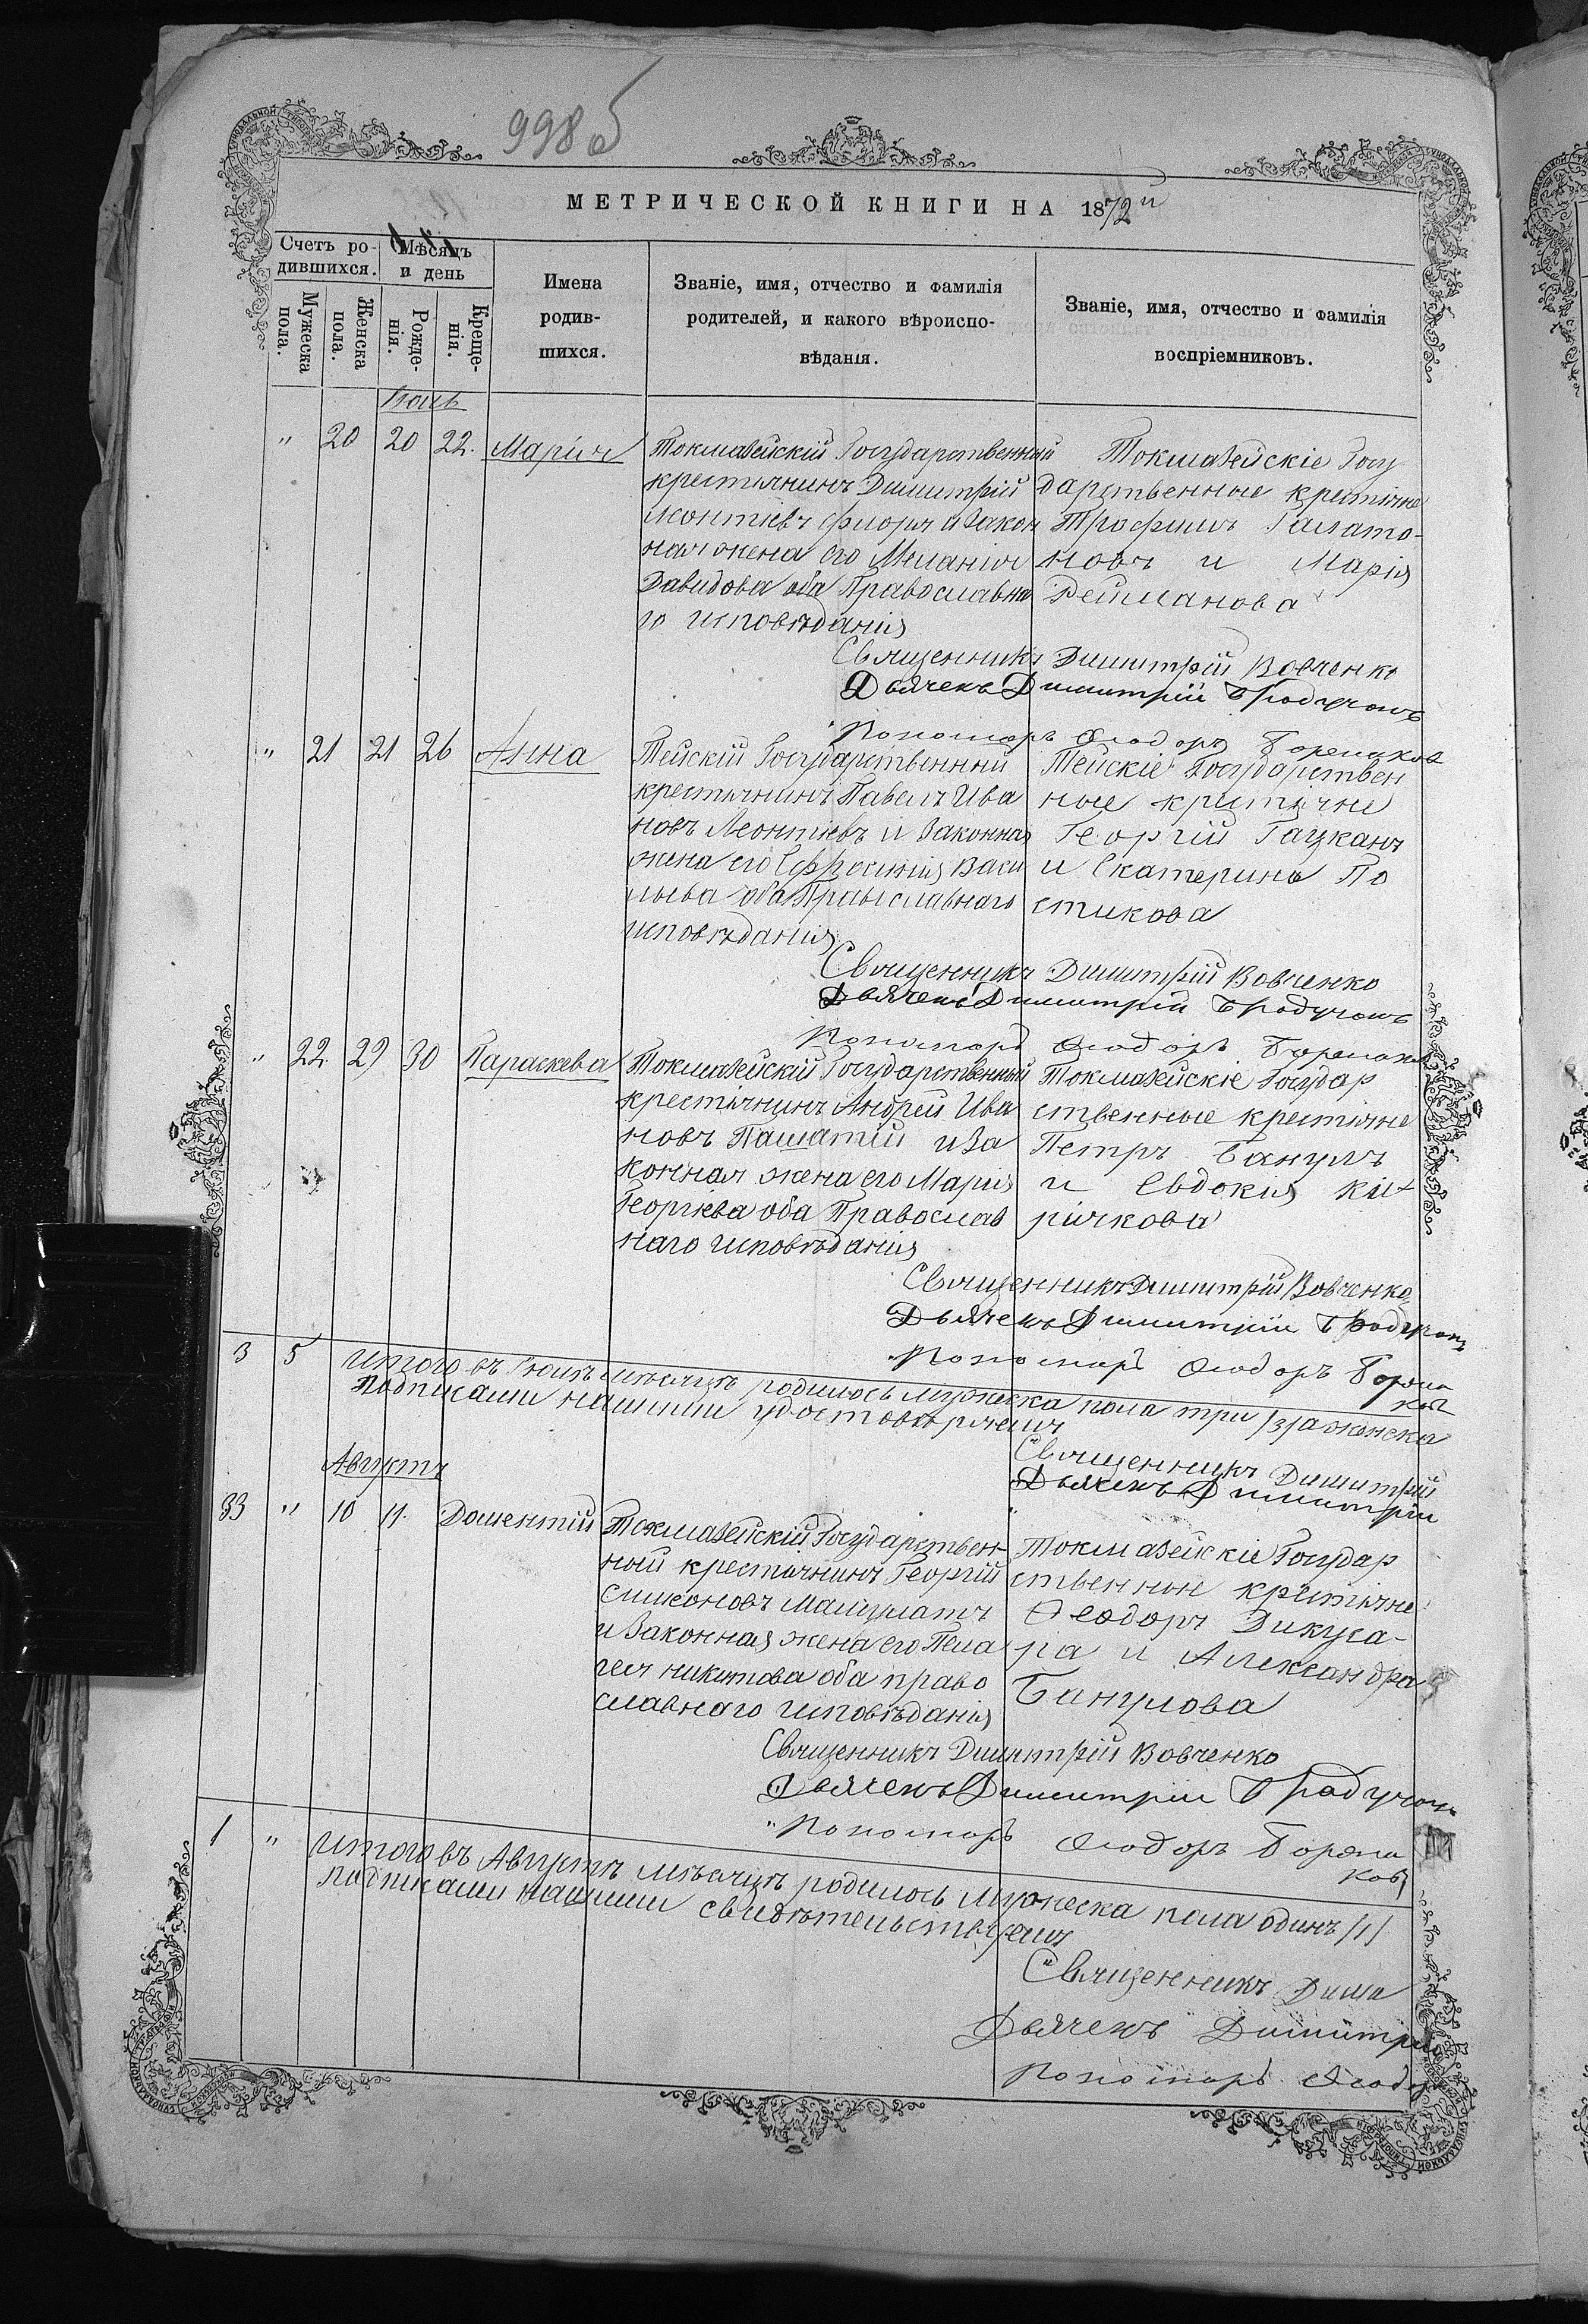 998 об
МЕТРИЧЕСКОЙ КНИГИ НА 1872й
Счетъ ро-
дившихся.
Мѣсяцъ
и день
Мужеска
пола.
Женска
пола.
Рожде-
нія.
Креще-
нія.
Имена
родив-
шихся.
Званіе, имя, отчество и фамилія
родителей, и какого вѣроиспо-
вѣданія.
Званіе, имя, отчество и фамилія
воспріемниковъ.
" 20 20 22. Марія
Токмазейскій Государственный
крестьянинъ Димитрій
Леонтіевъ Флоря и закон
ная жена его Меланія
Давидова оба Православна
го исповѣданія
Токмазейскіе Госу
дарственные крестьяне
Трофимъ Галато-
новъ и Марія
Рейманова
Священникъ Димитрій Вовченко
Дьячекъ Димитрій
Пономарь Ѳеодоръ
" 21 21 26 Анна
Тейскій Государственный
крестьянинъ Павелъ Ива
новъ Леонтіевъ и законная
жена его Ефросинія Васи
льева оба Православнаго
исповѣданія
Тейскіе Государствен
ные крестьяне
Георгій Гацканъ
и Екатерина По
стикова
Священникъ Димитрій Вовченко
Дьячекъ Димитрій
Пономарь Ѳеодоръ
" 22 29 30 Параскева
Токмазейскій Государственный
крестьянинъ Андрей Ива
новъ Паматій и за
конная жена его Марія
Георгіева оба Православ
наго исповѣданія
Токмазейскіе Государ
ственные крестьяне
Петръ Банулъ
и Евдокія Ки-
річкова
Священникъ Димитрій Вовченко
Дьячекъ Димитрій
Пономарь Ѳеодоръ
3 5 Итого въ Іюлѣ мѣсяцѣ родилось мужеска пола три /3/ а женска
подписами нашими удостовѣряемъ
Священникъ Димитрій
Дьячекъ Димитрій
Августъ
33 " 10 11. Дометій
Токмазейскій Государствен-
ный крестьянинъ Георгій
Симеоновъ
и Законная жена его Пела
гея Никитова оба право
славнаго исповѣданія
Токмазейскіе Государ
ственные крестьяне
Ѳеодоръ Дикуса-
ра и Александра
Банулова
Священникъ Димитрій Вовченко
Дьячекъ Димитрій
Пономарь Ѳеодоръ
1 " Итого въ Августѣ мѣсяцѣ родилось мужеска пола одинъ /1/
подписами нашими свидѣтельствуемъ
Священникъ Дими
Дьячекъ Димитрій
Пономарь Ѳеодор